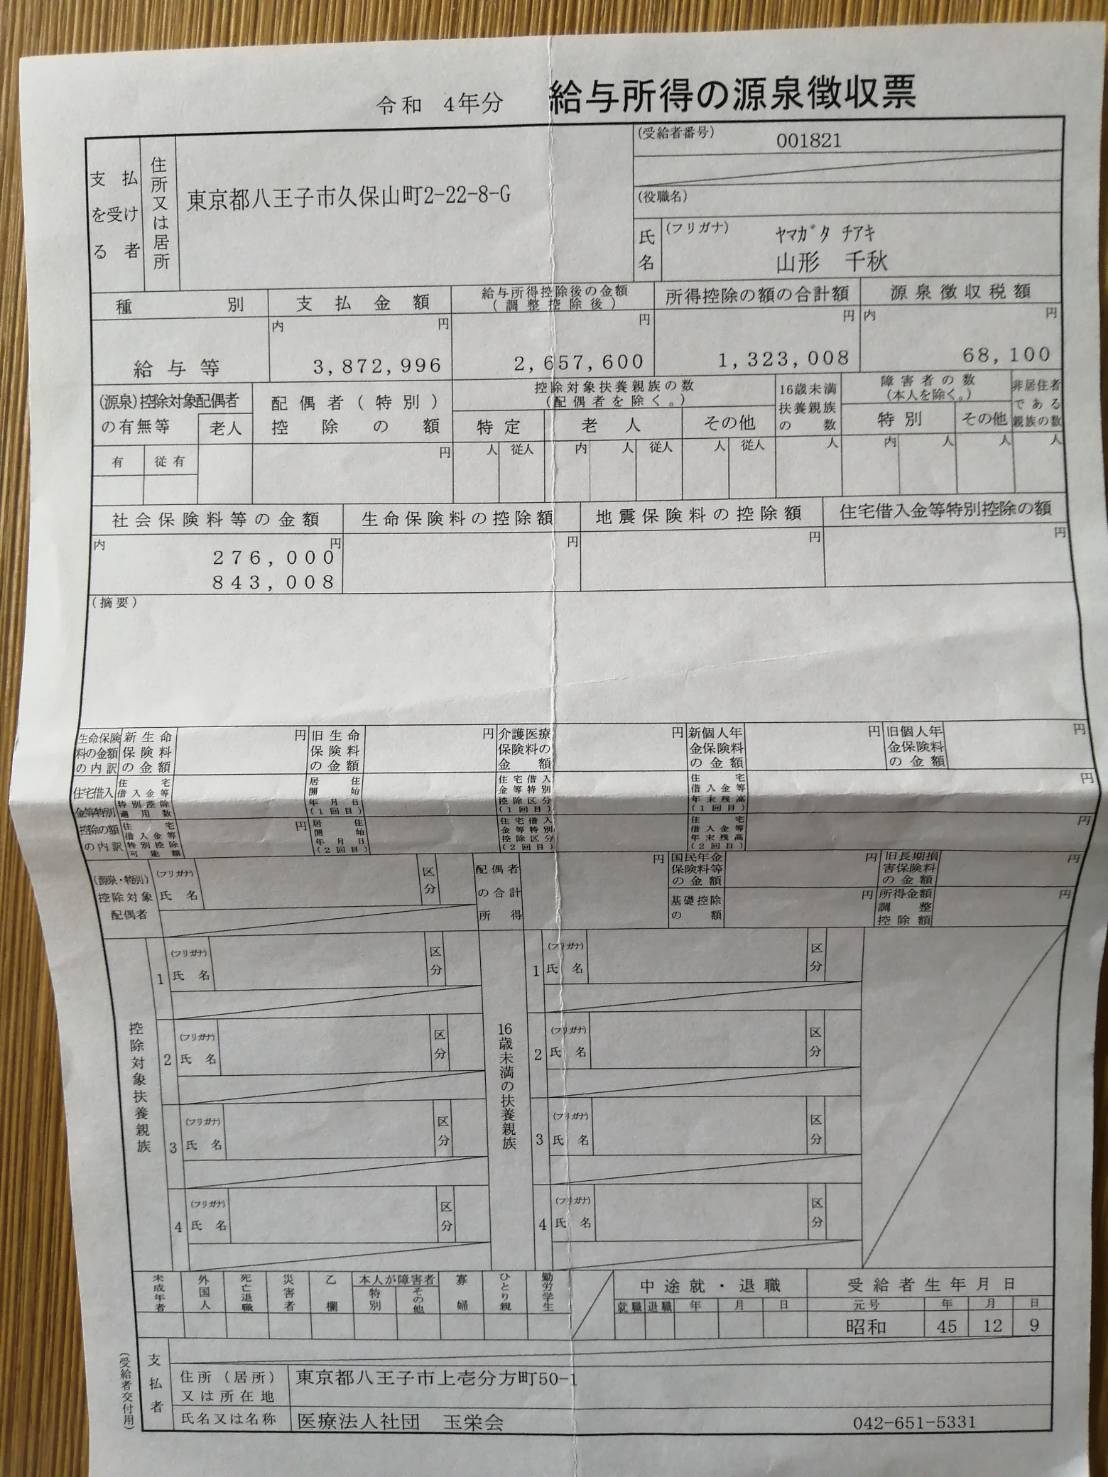 令和 4年分 給与所得の源泉徴収票
支払を受ける者
住所又は居所
東京都八王子市久保山町2-22-8-G
(受給者番号) 001821
(役職名)
氏名
(フリガナ) ヤマガタ チアキ
山形 千秋
種 別
支 払 金 額
給与所得控除後の金額(調整控除後)
所得控除の額の合計額
源泉徴収税額
内 円 円 円 内 円
給与等 3,872,996 2,657,600 1,323,008 68,100
(源泉)控除対象配偶者の有無等 老人
配偶者(特別)控除の額
控除対象扶養親族の数(配偶者を除く。)
16歳未満扶養親族の数
障害者の数(本人を除く。)
非居住者である親族の数
特定 老人 その他 特別 その他
有 従有 円 人 従人 内 人 従人 人 従人 人 内 人 人 人
社会保険料等の金額 生命保険料の控除額 地震保険料の控除額 住宅借入金等特別控除の額
内 円 円 円 円
276,000
843,008
(摘要)
生命保険料の金額の内訳
新生命保険料の金額 円
旧生命保険料の金額 円
介護医療保険料の金額 円
新個人年金保険料の金額 円
旧個人年金保険料の金額 円
住宅借入金等特別控除の額の内訳
住宅借入金等特別控除適用数
居住開始年月日(1回目)
住宅借入金等特別控除区分(1回目)
住宅借入金等年末残高(1回目) 円
住宅借入金等特別控除可能額 円
居住開始年月日(2回目)
住宅借入金等特別控除区分(2回目)
住宅借入金等年末残高(2回目) 円
(源泉・特別)控除対象配偶者
(フリガナ) 氏名 区分
配偶者の合計所得 円
国民年金保険料等の金額 円
旧長期損害保険料の金額 円
基礎控除の額 円
所得金額調整控除額 円
控除対象扶養親族
1 (フリガナ) 氏名 区分
2 (フリガナ) 氏名 区分
3 (フリガナ) 氏名 区分
4 (フリガナ) 氏名 区分
16歳未満の扶養親族
1 (フリガナ) 氏名 区分
2 (フリガナ) 氏名 区分
3 (フリガナ) 氏名 区分
4 (フリガナ) 氏名 区分
未成年者 外国人 死亡退職 災害者 乙欄 本人が障害者 特別 その他 寡婦 ひとり親 勤労学生
中途就・退職 受給者生年月日
就職 退職 年 月 日 元号 年 月 日
昭和 45 12 9
(受給者交付用)
支払者
住所(居所)又は所在地 東京都八王子市上壱分方町50-1
氏名又は名称 医療法人社団 玉栄会 042-651-5331